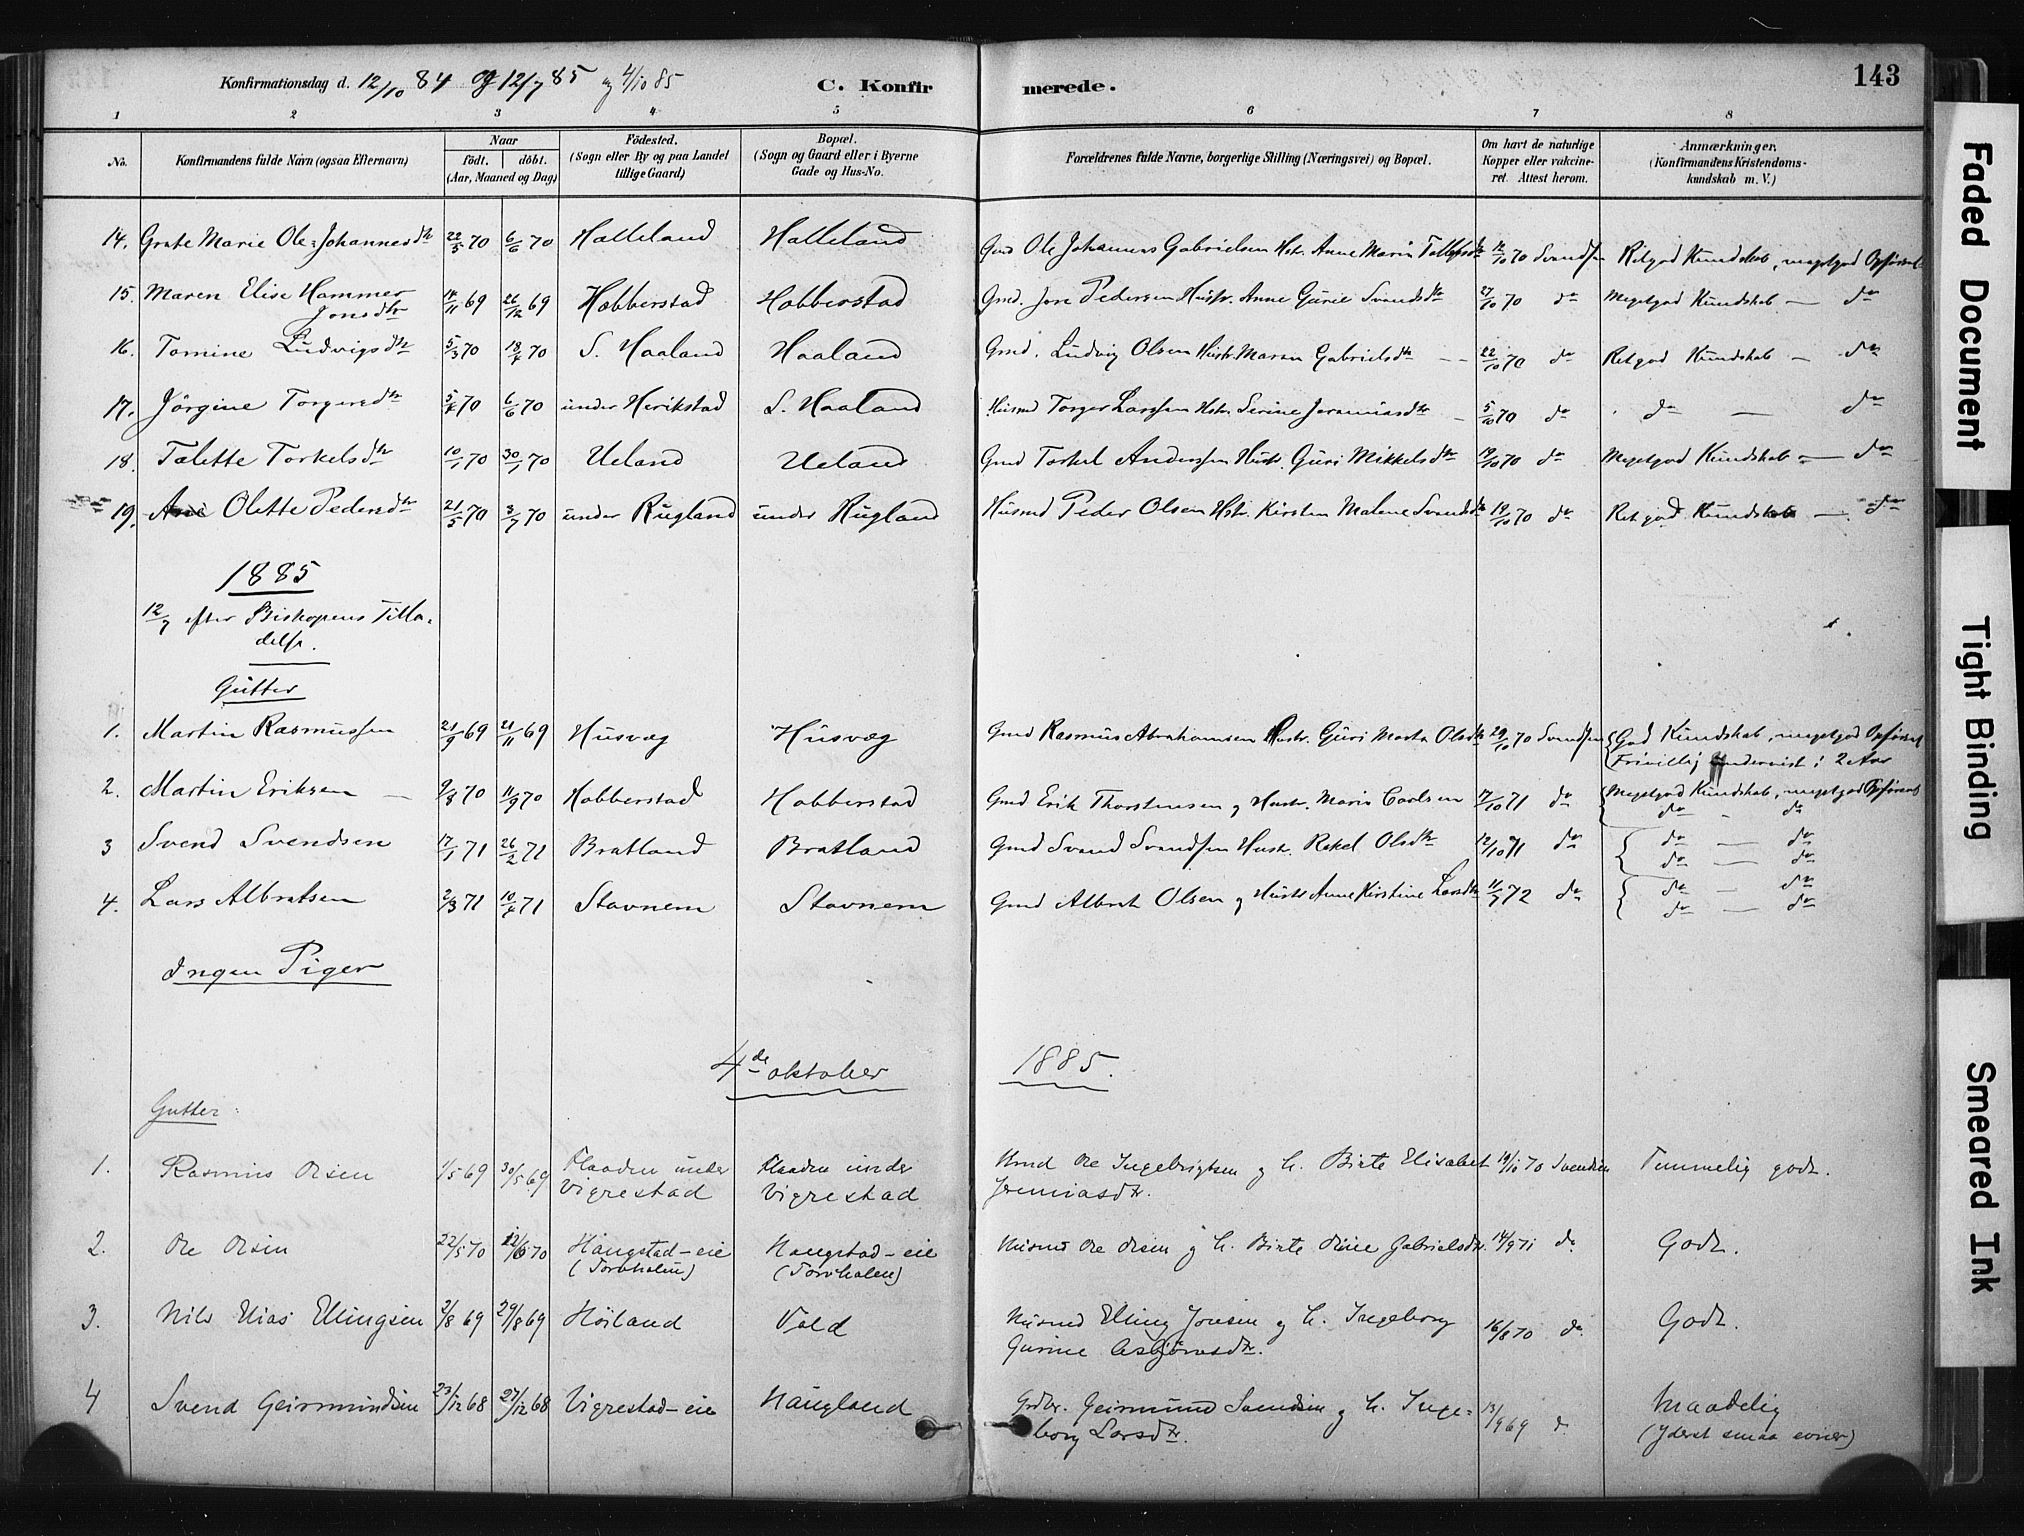 Konfirmationsdag d. 12/10 84 og 12/7 85 og 4/10 85
C. Konfir merede.
143
1 2 3 4 5 6 7 8
No. Konfirmandens fulde Navn (ogsaa Efternavn) Naar født. døbt. (Aar, Maaned og Dag) Fødested. (Sogn eller By og paa Landet tillige Gaard) Bopæl. (Sogn og Gaard eller i Byerne Gade og Hus-No. Forældrenes fulde Navne, borgerlige Stilling (Næringsvei) og Bopæl. Om havt de naturlige Kopper eller vakcineret. Attest herom. Anmærkninger. (Konfirmandens Kristendomskundskab m. V.)
14. Grete Marie Ole-Johannesdtr 22/5 70 6/6 70 Halleland Halleland Gmd Ole Johannes Gabrielsen Hstr. Anne Marie Tollefsdtr 12/10 70 Svendsen Retgod Kundskab, megetgod Opførsel
15. Maren Elise Hammer 14/11 69 26/12 69 Habberstad Habberstad Gmd. Jon Pedersen Hustr. Anne Gurie Svendsdtr 27/10 70 do Megetgod Kundskab — do
Jonsdtr
16. Tomine Ludvigsdtr 5/3 70 18/4 70 S. Haaland Haaland Gmd. Ludvig Olsen Hustr Maren Gabrielsdtr 22/10 70 do Retgod Kundskab — do
17. Jørgine Torgersdtr 5/4 70 6/6 70 under Herikstad S. Haaland Husmd Torger Larssen Hstr. Serine Jeremiasdtr 5/10 70 do do — do
18. Talette Torkelsdtr 10/1 70 30/1 70 Ueland Ueland Gmd Torkel Anderssen Hustr. Guri Mikkelsdtr 19/10 70 do Megetgod Kundskab — do
19. Olette Pedersdtr 21/5 70 3/7 70 under Rugland under Rugland Husmd Peder Olsen Hstr. Kirsten Malene Svendsdtr 19/10 70 do Retgod Kundskab — do
1885
12/7 efter Biskopens Tilla-
delse.
Gutter
1. Martin Rasmussen 21/9 69 21/11 69 Husvæg Husvæg Gmd Rasmus Abrahamsen Hustr. Guri Marta Olsdtr 29/10 70 Svendsen God Kundskab, megetgod Opførsel
Frivillig undervist i 2 Aar
2. Martin Eriksen — 9/8 70 11/9 70 Habberstad Habberstad Gmd Erik Thorstensen og Hustr. Maria Carlsen 17/10 71 do Megetgod Kundskab, megetgod Opførsel
do — do
3 Svend Svendsen 17/1 71 26/2 71 Bratland Bratland Gmd Svend Svendsen Hustr. Rakel Olsdtr 12/10 71 do do — do
do — do
4. Lars Albretsen 2/3 71 10/4 71 Stavnem Stavnem Gmd Albret Olsen og Hustr Anne Kirstine Larsdtr 11/7 72 do do — do
do — do
Ingen Piger
4de oktober 1885.
Gutter:
1. Rasmus Olsen 1/5 69 30/5 69 Flaaden under Flaaden under Hmd Ole Ingebrigtsen og h. Birte Elisabet 19/10 70 Svendsen Temmelig godt.
Vigrestad Vigrestad Jeremiasdtr.
2. Ole Olsen 22/5 70 12/6 70 Haugstad-eie Haugstad-eie Husmd Ole Olsen og h. Birte Oline Gabrielsdtr. 14/9 71 do Godt.
(Torvhalen) (Torvhalen)
3. Nils Elias Ellingsen 2/8 69 29/8 69 Høiland Vold Husmd Elling Jonsen og h. Ingeborg 16/8 70 do. Godt.
Gurine Asbjørnsdtr.
4 Svend Geirmundsen 23/12 68 27/12 68 Vigrestad-eie Haugland Grdbr. Geirmund Svendsen og h. Inge- 13/9 69 do Maadelig
borg Larsdtr. (yderst smaa evner)
Faded Document
Tight Binding
Smeared Ink